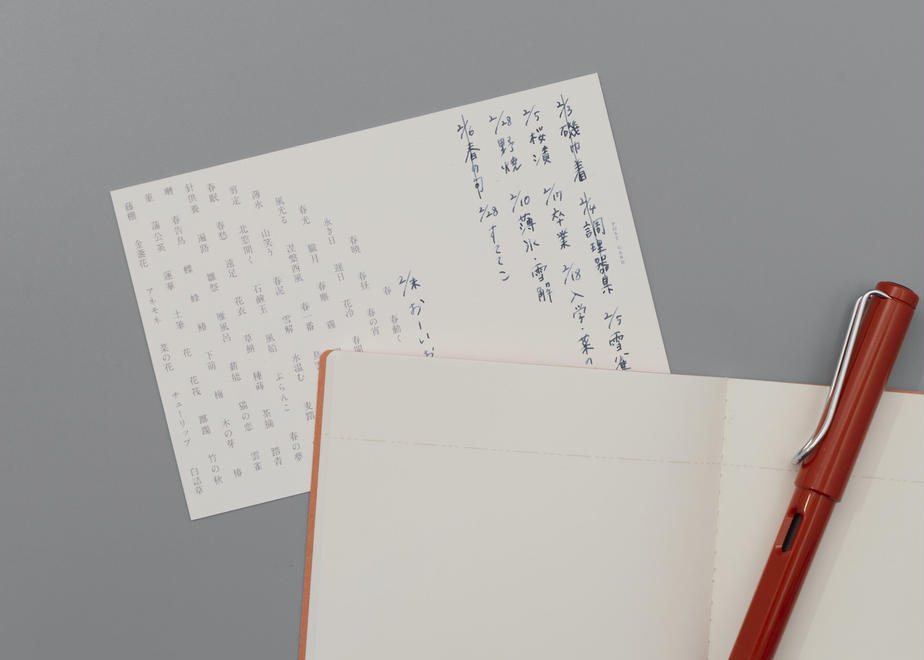 POST CARD
2/3 磯巾着 2/4 調理器具 2/5 雪雀
2/5 桜漬 2/17 卒業 2/18 入学・菜の
2/28 野焼 2/10 薄氷・雪解
2/6 春の旬 2/28 すここ
2/末 おーいお
春 春動く
春暁 春昼 春の宵
永き日 遅日 花冷
春光 朧月 春塵 霞
風光る 涅槃西風 春一番
薄氷 山笑う 春泥 雪解 水温む 麦踏
剪定 北窓開く 石鹸玉 風船 ぶらんこ 春の夢
春眠 春愁 遠足 花衣 草餅 種蒔 茶摘 踏青
針供養 遍路 雛祭 雁風呂 薪能 猫の恋 雲雀
囀 春告鳥 蝶 蜂 下萌 梅 木の芽 椿
菫 蒲公英 蓮華 土筆 花 花筏 躑躅 竹の秋
藤棚 金盞花 アネモネ 菜の花 チューリップ 白詰草